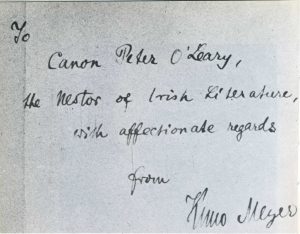 To
Canon Peter O'Leary,
the Nestor of Irish Literature,
with affectionate regards
from
Kuno Meyer